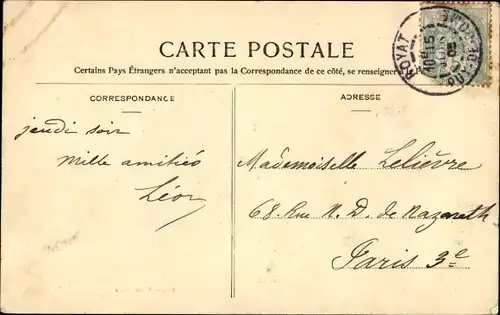 CARTE POSTALE
Certains Pays Étrangers n'acceptant pas la Correspondance de ce côté, se renseigner
CORRESPONDANCE
ADRESSE
jeudi soir
mille amitiés
Léon
Mademoiselle Lelièvre
68 Rue N. D. de Nazareth
Paris 3e
ROYAT